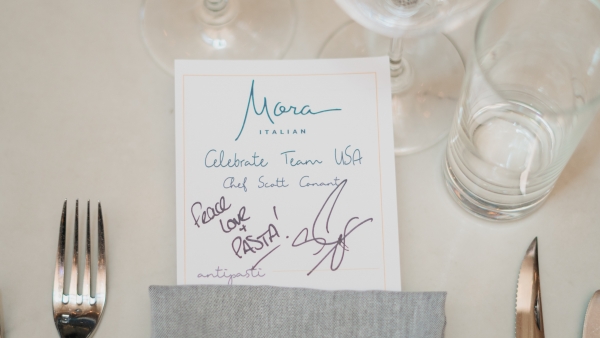 Mora
ITALIAN
Celebrate Team USA
Chef Scott Conant
Peace
Love
+
PASTA!
antipasti